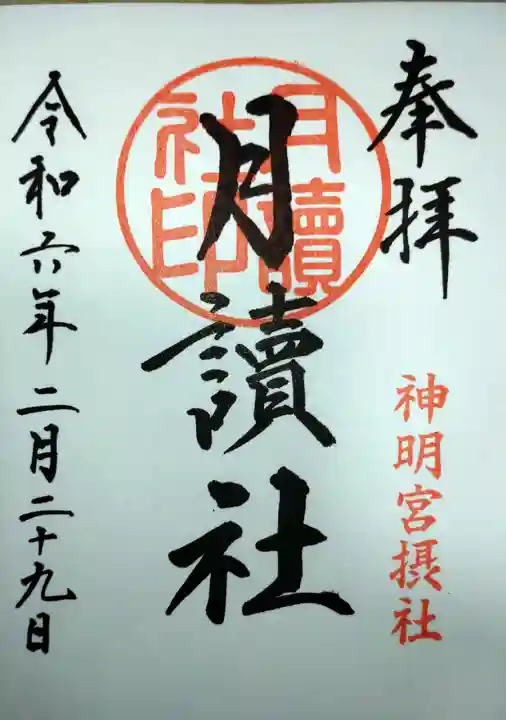 奉拝
神明宮摂社
月讀社
月讀
社印
令和六年二月二十九日